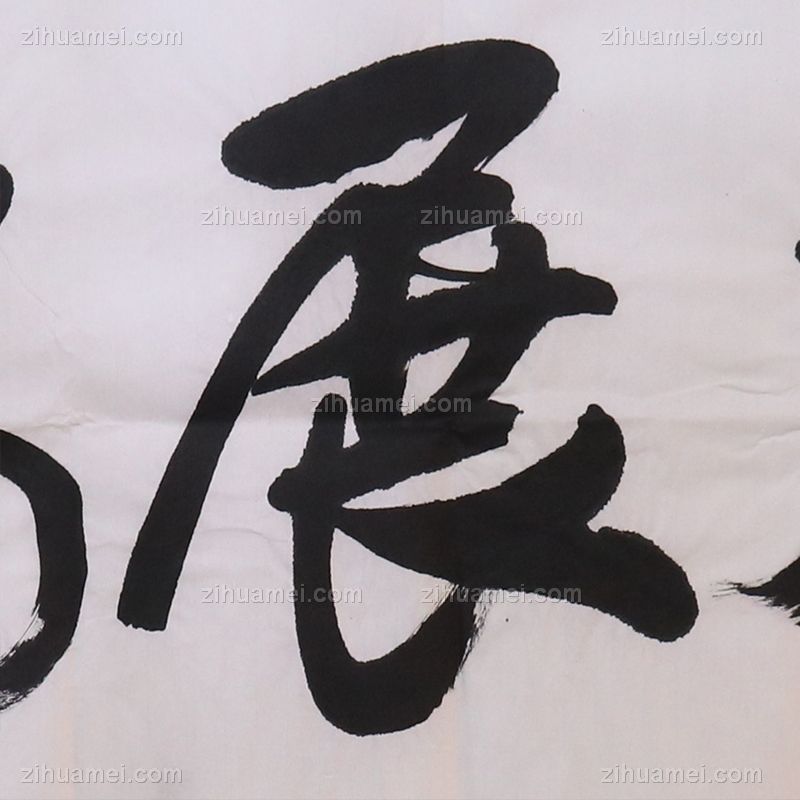 zihuamei.com zihuamei.com
展
zihuamei.com zihuamei.com
zihuamei.com
zihuamei.com zihuamei.com
zihuamei.com zihuamei.com